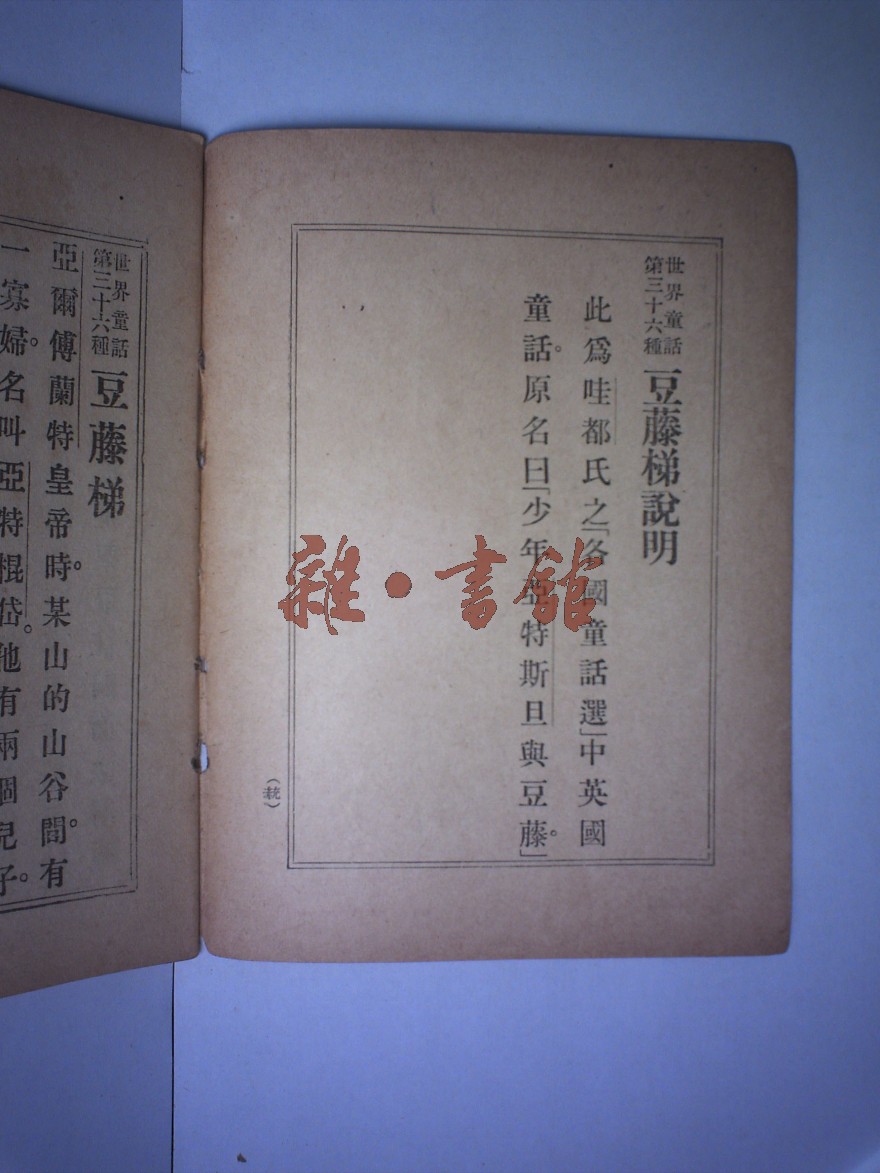 世界童話
第三十六種
豆藤梯說明
此爲哇都氏之「各國童話選」中英國
童話。原名曰「少年亞特斯旦與豆藤。」
世界童話
第三十六種
豆藤梯
亞爾傅蘭特皇帝時。某山的山谷間。有
一寡婦。名叫亞特棍岱。他有兩個兒子。
雜·書館